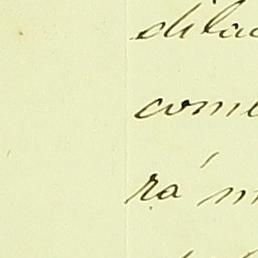 dilac
come
rá m